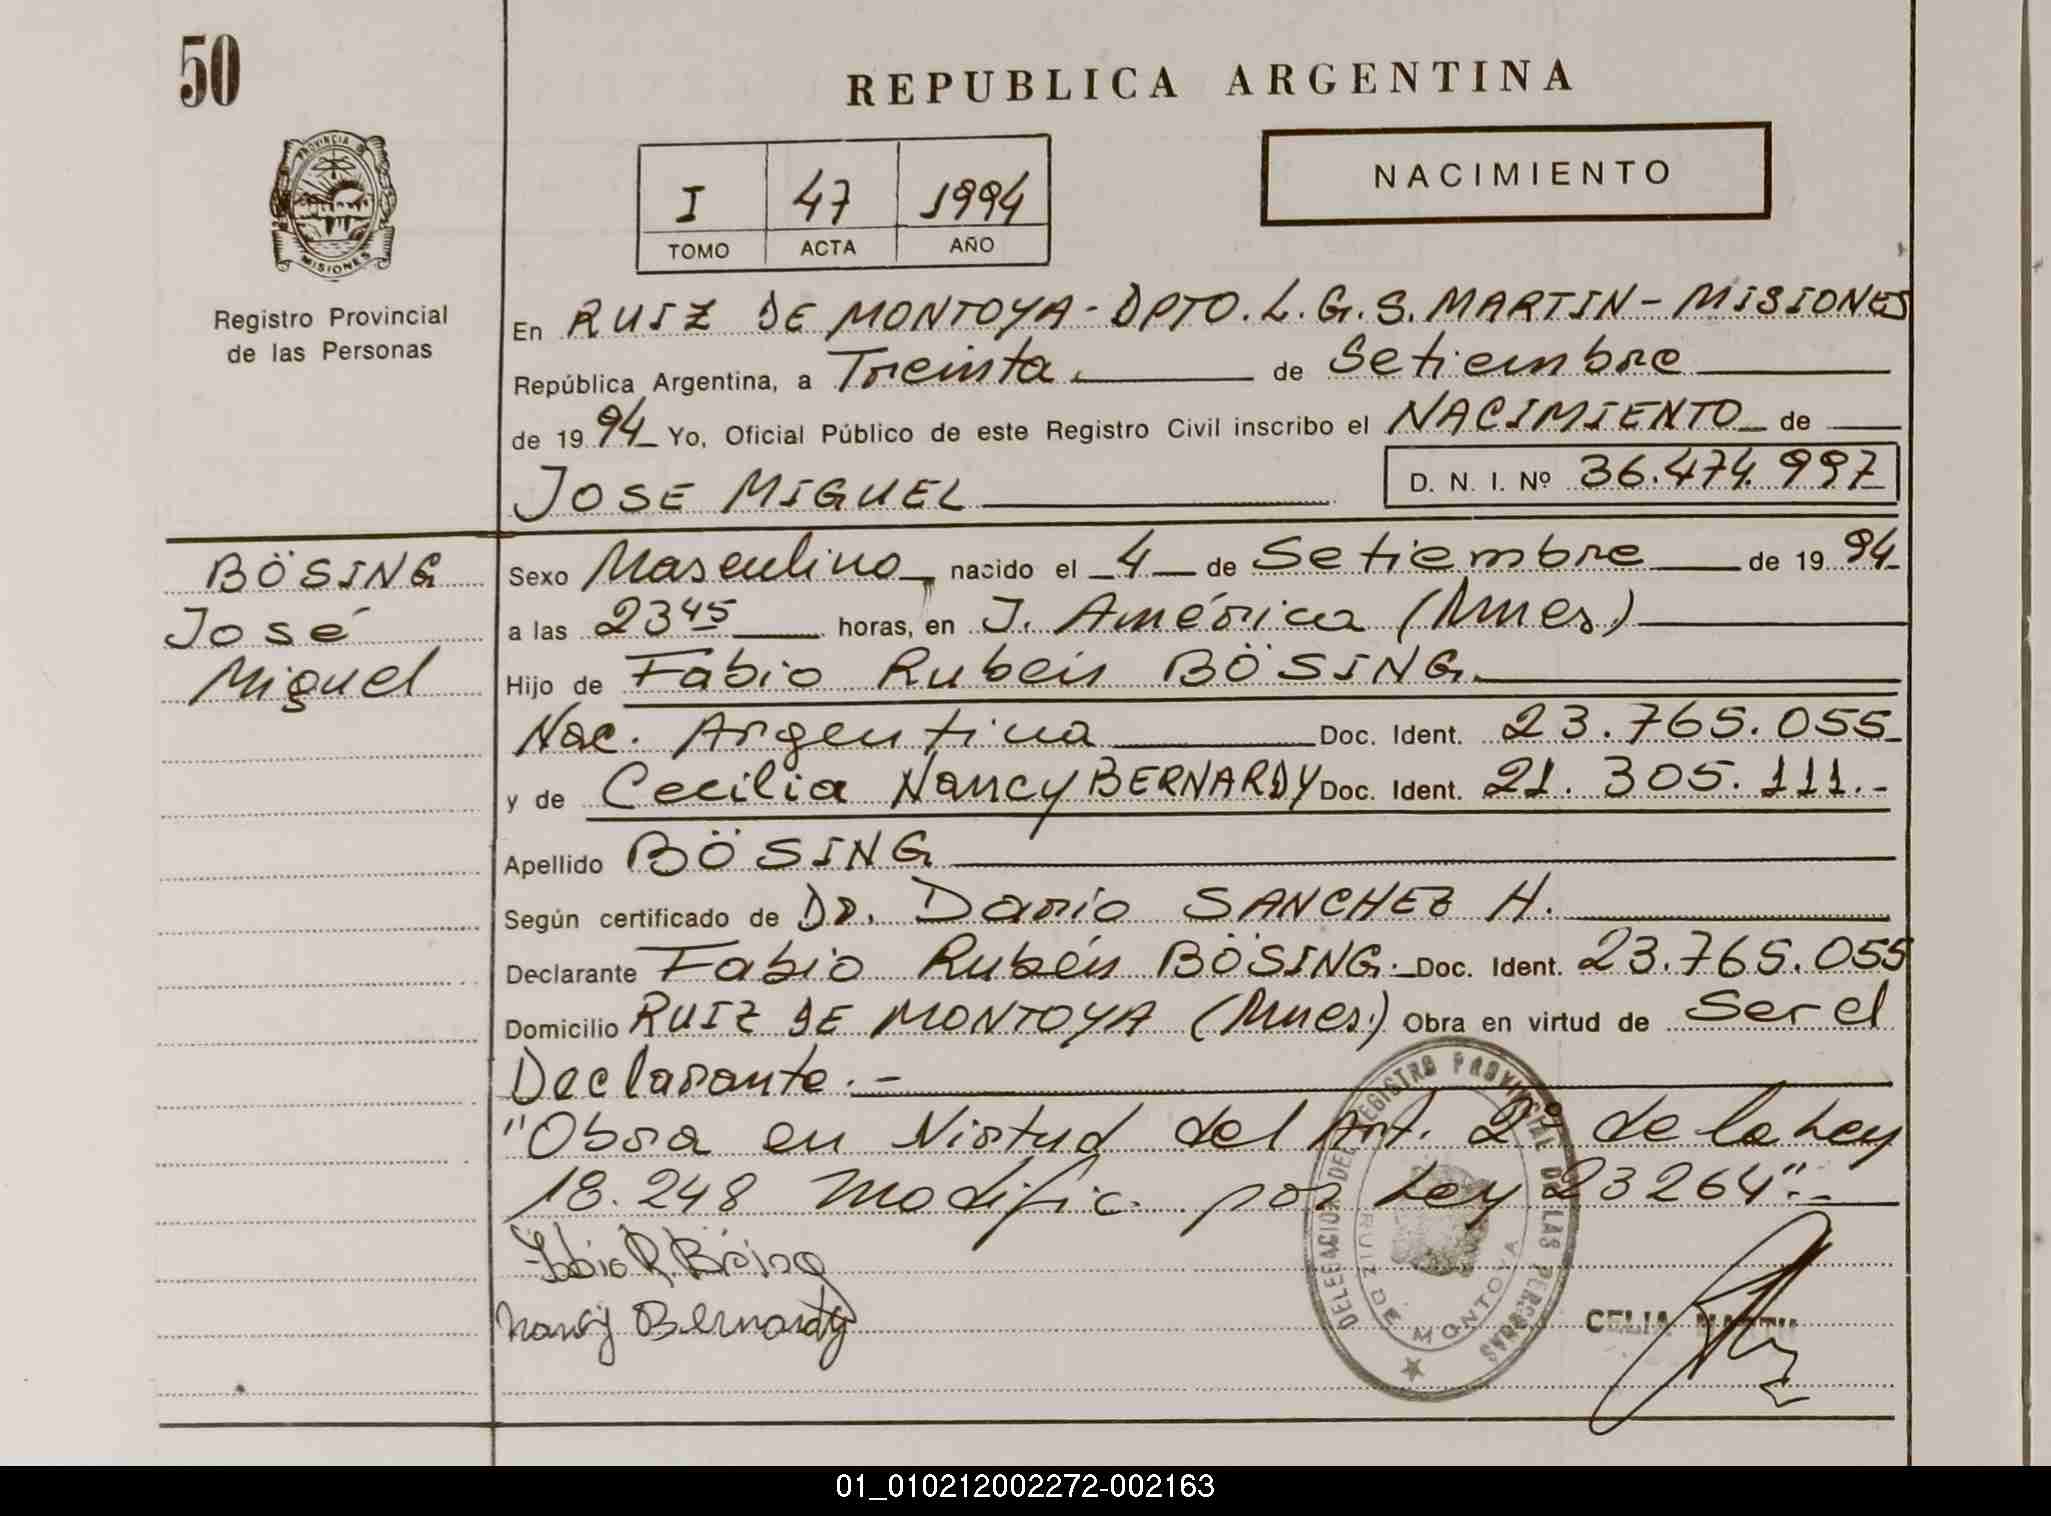 50
REPUBLICA ARGENTINA
PROVINCIA D
MISIONES
Registro Provincial
de las Personas
I 47 1994
TOMO ACTA AÑO
NACIMIENTO
En RUIZ DE MONTOYA - DPTO. L. G. S. MARTIN - MISIONES
República Argentina, a Treinta. de Setiembre
de 19 94 Yo, Oficial Público de este Registro Civil inscribo el NACIMIENTO de
JOSE MIGUEL D. N. I. Nº 36.474.997
BÖSING
José
Miguel
Sexo Masculino, nacido el 4 de Setiembre de 19 94
a las 23 45 horas, en J. América (Mnes.)
Hijo de Fabio Rubén BÖSING.
Nac. Argentina Doc. Ident. 23.765.055
y de Cecilia Nancy BERNARDY Doc. Ident. 21.305.111.-
Apellido BÖSING
Según certificado de Dr. Darío SANCHEZ H.
Declarante Fabio Rubén BÖSING. Doc. Ident. 23.765.055
Domicilio RUIZ DE MONTOYA (Mnes.) Obra en virtud de Ser el
Declarante.-
"Obra en Virtud del Art. 2º de la Ley
18.248 modific. por Ley 23264".-
Fabio R. Bösing
Nancy Bernardy
DELEGACION DEL REGISTRO PROVINCIAL DE LAS PERSONAS
RUIZ DE MONTOYA
CELIA
01_010212002272-002163